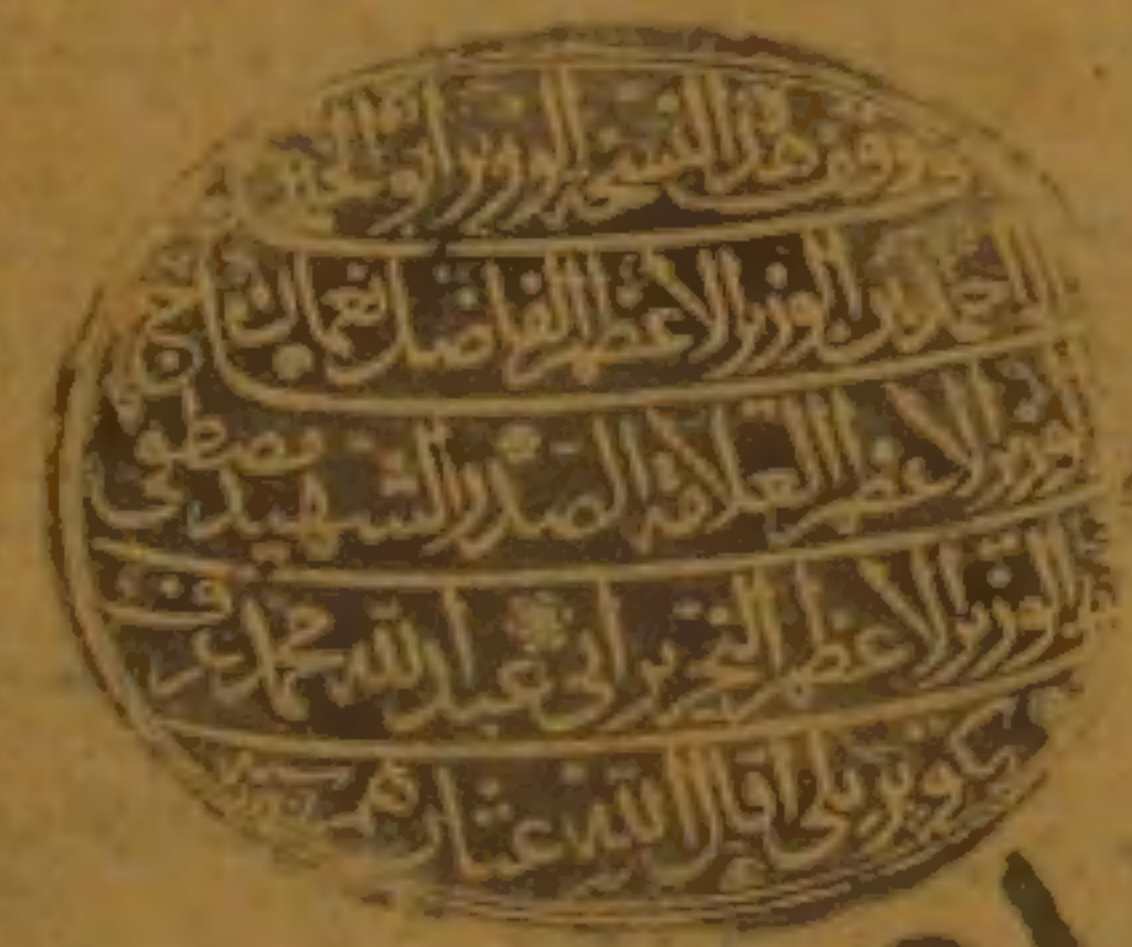 وقف هذا النسخه الوزير ابو الخير الحاج
احمد بن الوزير الاعظم الفاضل نعمان بن
الوزير الاعظم العلامة الصدر الشهيد مصطفى
بن الوزير الاعظم النحرير ابي عبد الله محمد عرف
بكوپريلي اقال الله عثارهم